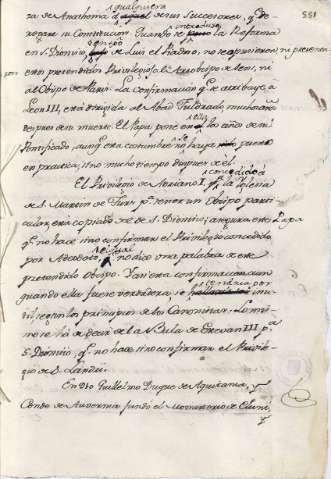 igualquiera 551
za de Anathema à sus Successores qe de
rogare su Constitucion. Quando se introduxo la Reforma
en S. Dionisio, de Luis el Piadoso, no se aprovecharon ni presentaron
estos pretendidos Privilegios al Arzobispo de Sens, ni
al Obispo de Paris. La confirmacion qe se atribuye à
Leon III, està dirigida al Abad Fulrado, mucho
despues de su muerte. El Papa pone los años de su
Pontificado, aunqe esta costumbre no se puso
en practica, sino mucho tiempo despues de èl.
El Privilegio de Adriano I. concedido à la Iglesia
de S. Martin de Turs pa tener un Obispo parti-
cular, està copiado de el de S. Dionisio; asegura este Papa
qe no hace sino confirmar el Privilegio concedido
por Adeodato, el qual no dice una palabra de este
pretendido Obispo. Y assi esta confirmacion aun
quando ella fuere verdadera, se
segun los principios de los Canonistas. Lo mis-
mo se ha de decir de la Bula de Estevan III pa
S. Dionisio, qe no hace sino confirmar el Privile-
gio de S. Landri.
En 910 Guillelmo Duque de Aquitania, y
Conde de Auvernia fundó el Monasterio de Cluni,
y